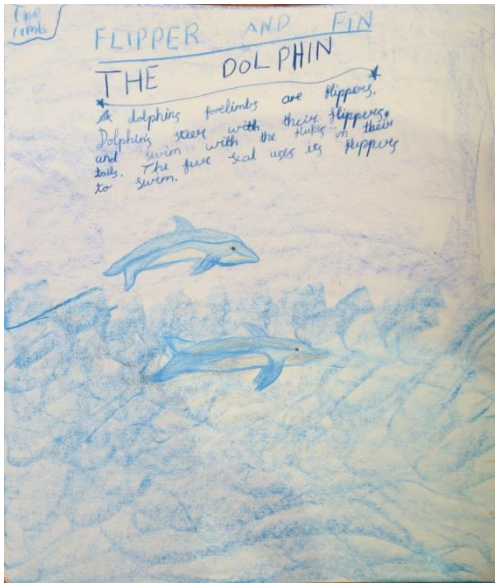 The
limb
FLIPPER AND FIN
THE DOLPHIN
A dolphins forelimbs are flippers.
Dolphins steer with their flippers,
and swim with the flukes on their
tails. The fure seal uses its flippers
to swim.